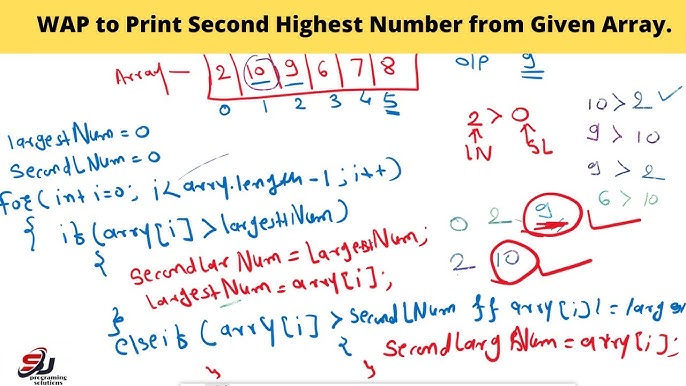 WAP to Print Second Highest Number from Given Array.
Array — 2 10 9 6 7 8
0 1 2 3 4 5
O/P 9
largestNum = 0
SecondLNum = 0
for(int i=0; i<array.length-1; i++)
{ if(array[i]>largestNum)
{ SecondLarNum = LargestNum;
largestNum = array[i];
}
else if(array[i]>secondLNum && array[i]!=larges
{ SecondLargNum = array[i];
}
}
2 > 0
LN SL
10>2
9>10
9>2
6>10
0 2 9
2 10
SJ
programing
solutions